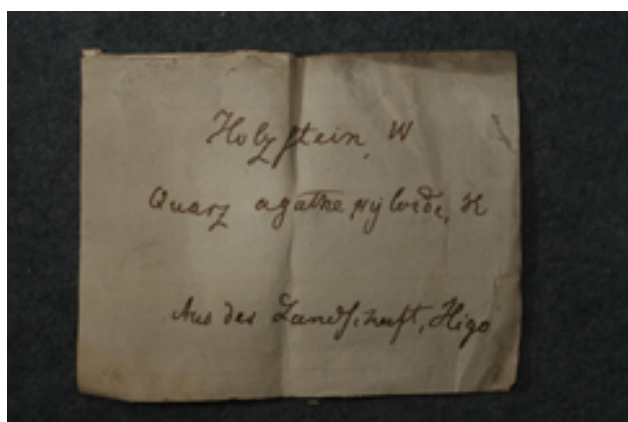 Holzstein, W
Quarz agathe xyloide, H
Aus der Landschaft, Higo